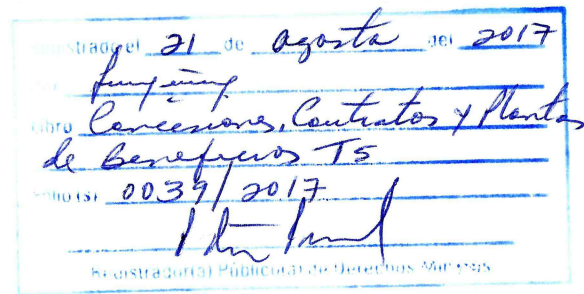 Registrado el 21 de agosto del 2017
Libro Concesiones, Contratos y Plantas
de Beneficios T5
Folio (s) 0039/2017
Registrador(a) Público(a) de Derechos Mineros